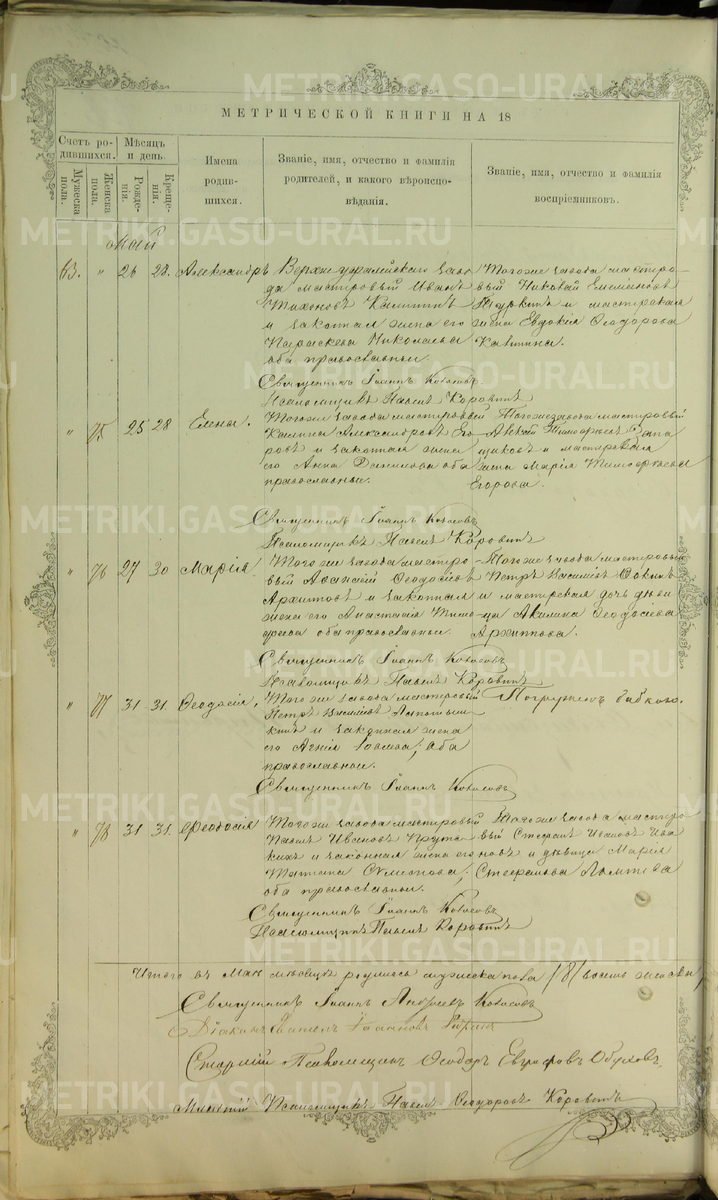 METRIKI.GASO-URAL.RU
МЕТРИЧЕСКОЙ КНИГИ НА 18
Счетъ родившихся.
Мужеска пола.
Женска пола.
Мѣсяцъ и день.
Рожденія.
Крещенія.
Имена родившихся.
Званіе, имя, отчество и фамилія родителей, и какого вѣроисповѣданія.
Званіе, имя, отчество и фамилія воспріемниковъ.
Май
63. " 26 28. Александръ
Верхнеуфалейскаго заво-
да мастеровый Иванъ
Тихоновъ
и законная жена его
Параскева Николаева
оба православные.
Тогоже завода мастеро-
вый Николай
и мастерская
жена Евдокія Ѳеодорова
Священникъ Іоаннъ
Псаломщикъ Павелъ Коровинъ
" 75 25 28 Елена.
Тогоже завода мастеровый
Александровъ Его-
ровъ и законная жена
его Анна Данилова оба
православные.
Тогоже завода мастеровый
и мастерская
жена Марія Тимофеева
Егорова.
Священникъ Іоаннъ
Псаломщикъ Павелъ Коровинъ
" 76 27 30 Марія
Тогоже завода мастеро-
вый Аѳанасій Ѳеодосіевъ
Архиповъ и законная
жена его Анастасія Тимо-
феева оба православные.
Тогоже завода мастеровый
Петръ Василіевъ
и мастерская дочь дѣви-
ца Акилина Ѳеодосіева
Архипова.
Священникъ Іоаннъ
Псаломщикъ Павелъ Коровинъ
" 77 31 31. Ѳеодосія.
Тогоже завода мастеровый
Петръ Василіевъ
и законная жена
его Агнія оба
православные.
Погружена бабкою.
Священникъ Іоаннъ
" 78 31 31. Ѳеодосія
Тогоже завода мастеровый
Павелъ Ивановъ
и законная жена его
Татіана Симеонова,
оба православные.
Тогоже завода мастеро-
вый Стефанъ Ивановъ Ива-
новъ и дѣвица Марія
Стефанова
Священникъ Іоаннъ
Псаломщикъ Павелъ Коровинъ
Итого въ Маѣ мѣсяцѣ родилось мужеска пола /8/ восемь женска /
Священникъ Іоаннъ Андреевъ
Діаконъ Іоанновъ
Старшій Псаломщикъ Ѳеодоръ Евграфовъ Обуховъ
Младшій Псаломщикъ Павелъ Ѳеодоровъ Коровинъ